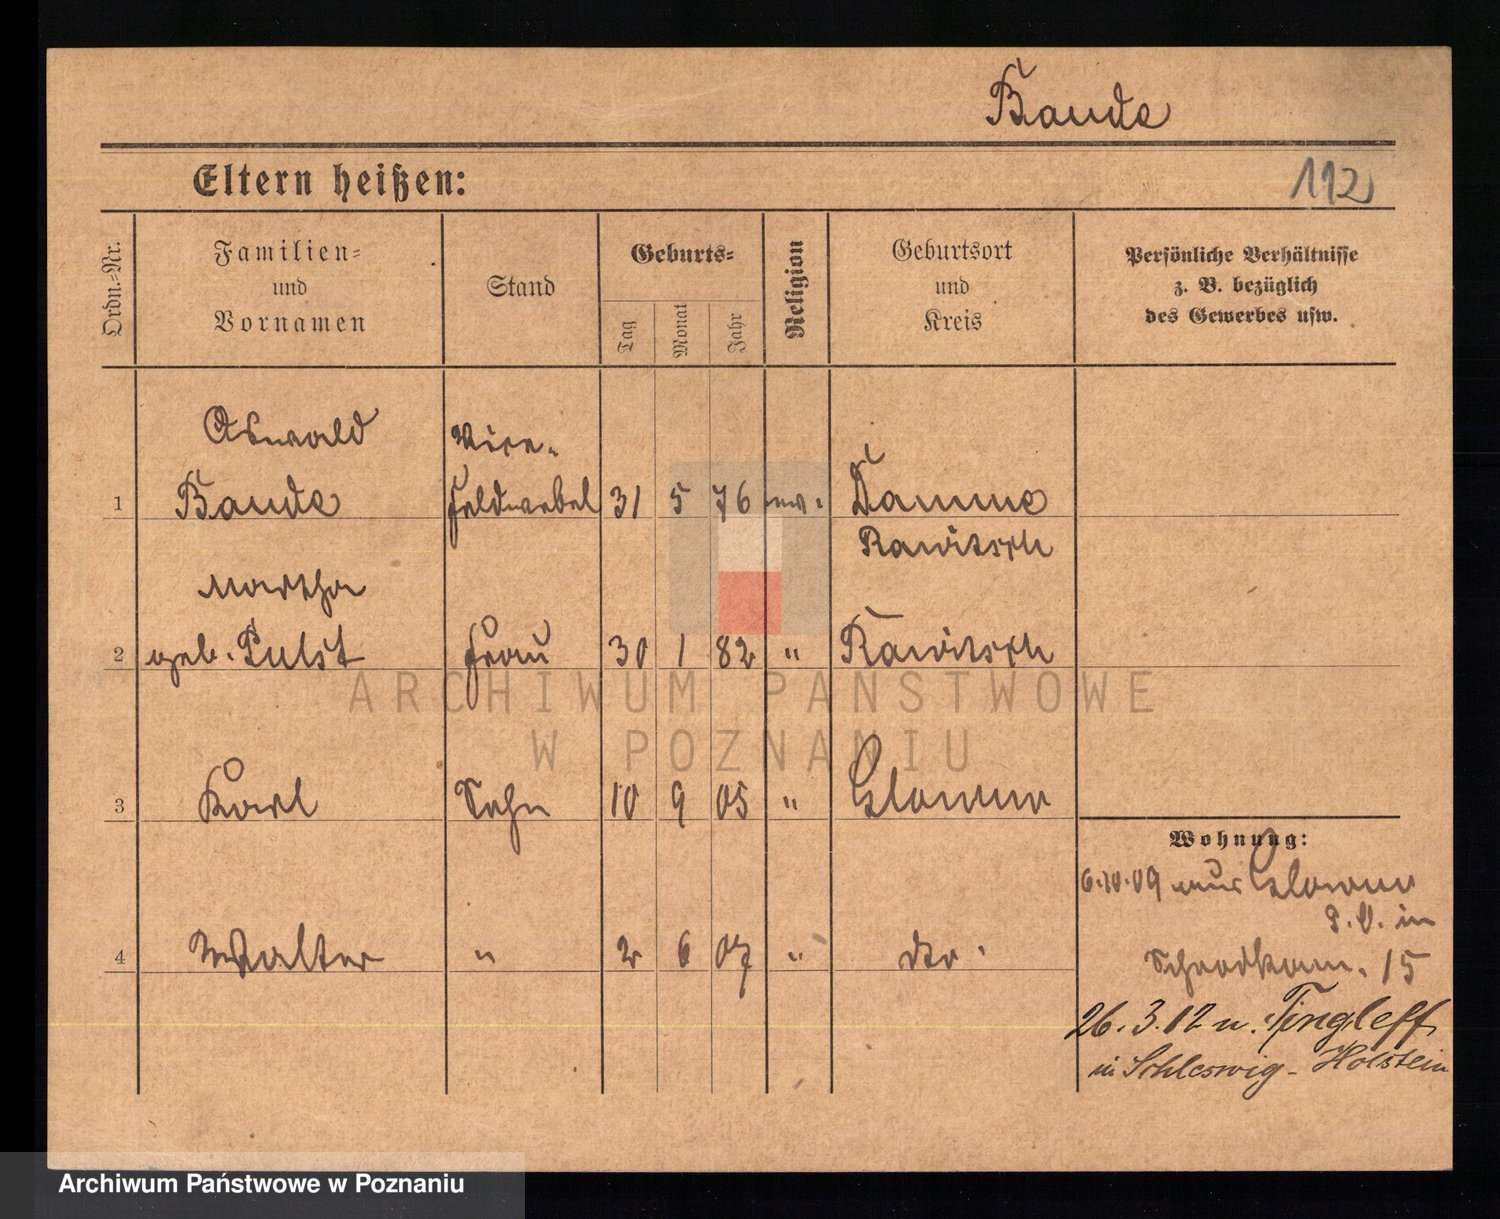 Baude
Eltern heißen:
112
Ordn.-Nr.
Familien-
und
Vornamen
Stand
Geburts-
Tag
Monat
Jahr
Religion
Geburtsort
und
Kreis
Persönliche Verhältnisse
z. B. bezüglich
des Gewerbes usw.
Oswald
Vice-
1 Baude Feldwebel 31 5 76 ev. Damme
Rawitsch
Martha
2 geb. Pulst Frau 30 1 82 " Rawitsch
3 Karl Sohn 10 9 05 "
Wohnung:
6.10.09 aus
in
4 Walter " 2 6 07 " dto.
15
26.3.12 n. Tingleff
in Schleswig-Holstein
ARCHIWUM PAŃSTWOWE
W POZNANIU
Archiwum Państwowe w Poznaniu